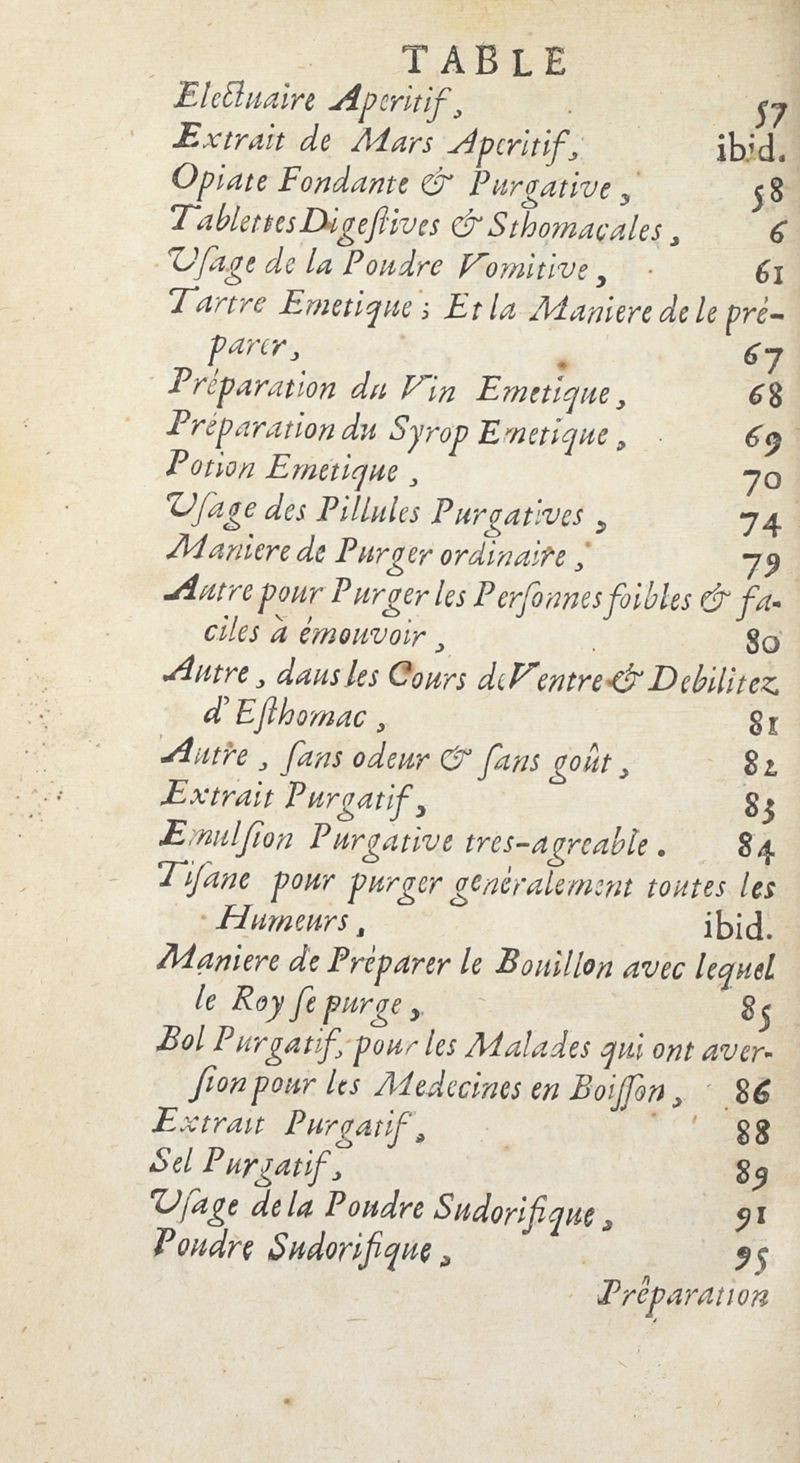 TABLE
Electuaire Aperitif, 57
Extrait de Mars Aperitif, ibid.
Opiate Fondante & Purgative, 58
Tablettes Digeſtives & Sthomacales, 6
Vſage de la Poudre Vomitive, 61
Tartre Emetique; Et la Maniere de le pré-
parer, 67
Préparation du Vin Emetique, 68
Préparation du Syrop Emetique, 69
Potion Emetique, 70
Vſage des Pillules Purgatives, 74
Maniere de Purger ordinaire, 79
Autre pour Purger les Perſonnes foibles & fa-
ciles à émouvoir, 80
Autre, daus les Cours de Ventre & Debilitez
d'Eſthomac, 81
Autre, ſans odeur & ſans goût, 82
Extrait Purgatif, 83
Emulſion Purgative tres-agreable. 84
Tiſane pour purger generalement toutes les
Humeurs, ibid.
Maniere de Préparer le Bouillon avec lequel
le Roy ſe purge, 85
Bol Purgatif, pour les Malades qui ont aver-
ſion pour les Medecines en Boiſſon, 86
Extrait Purgatif, 88
Sel Purgatif, 89
Vſage de la Poudre Sudorifique, 91
Poudre Sudorifique, 95
Préparation